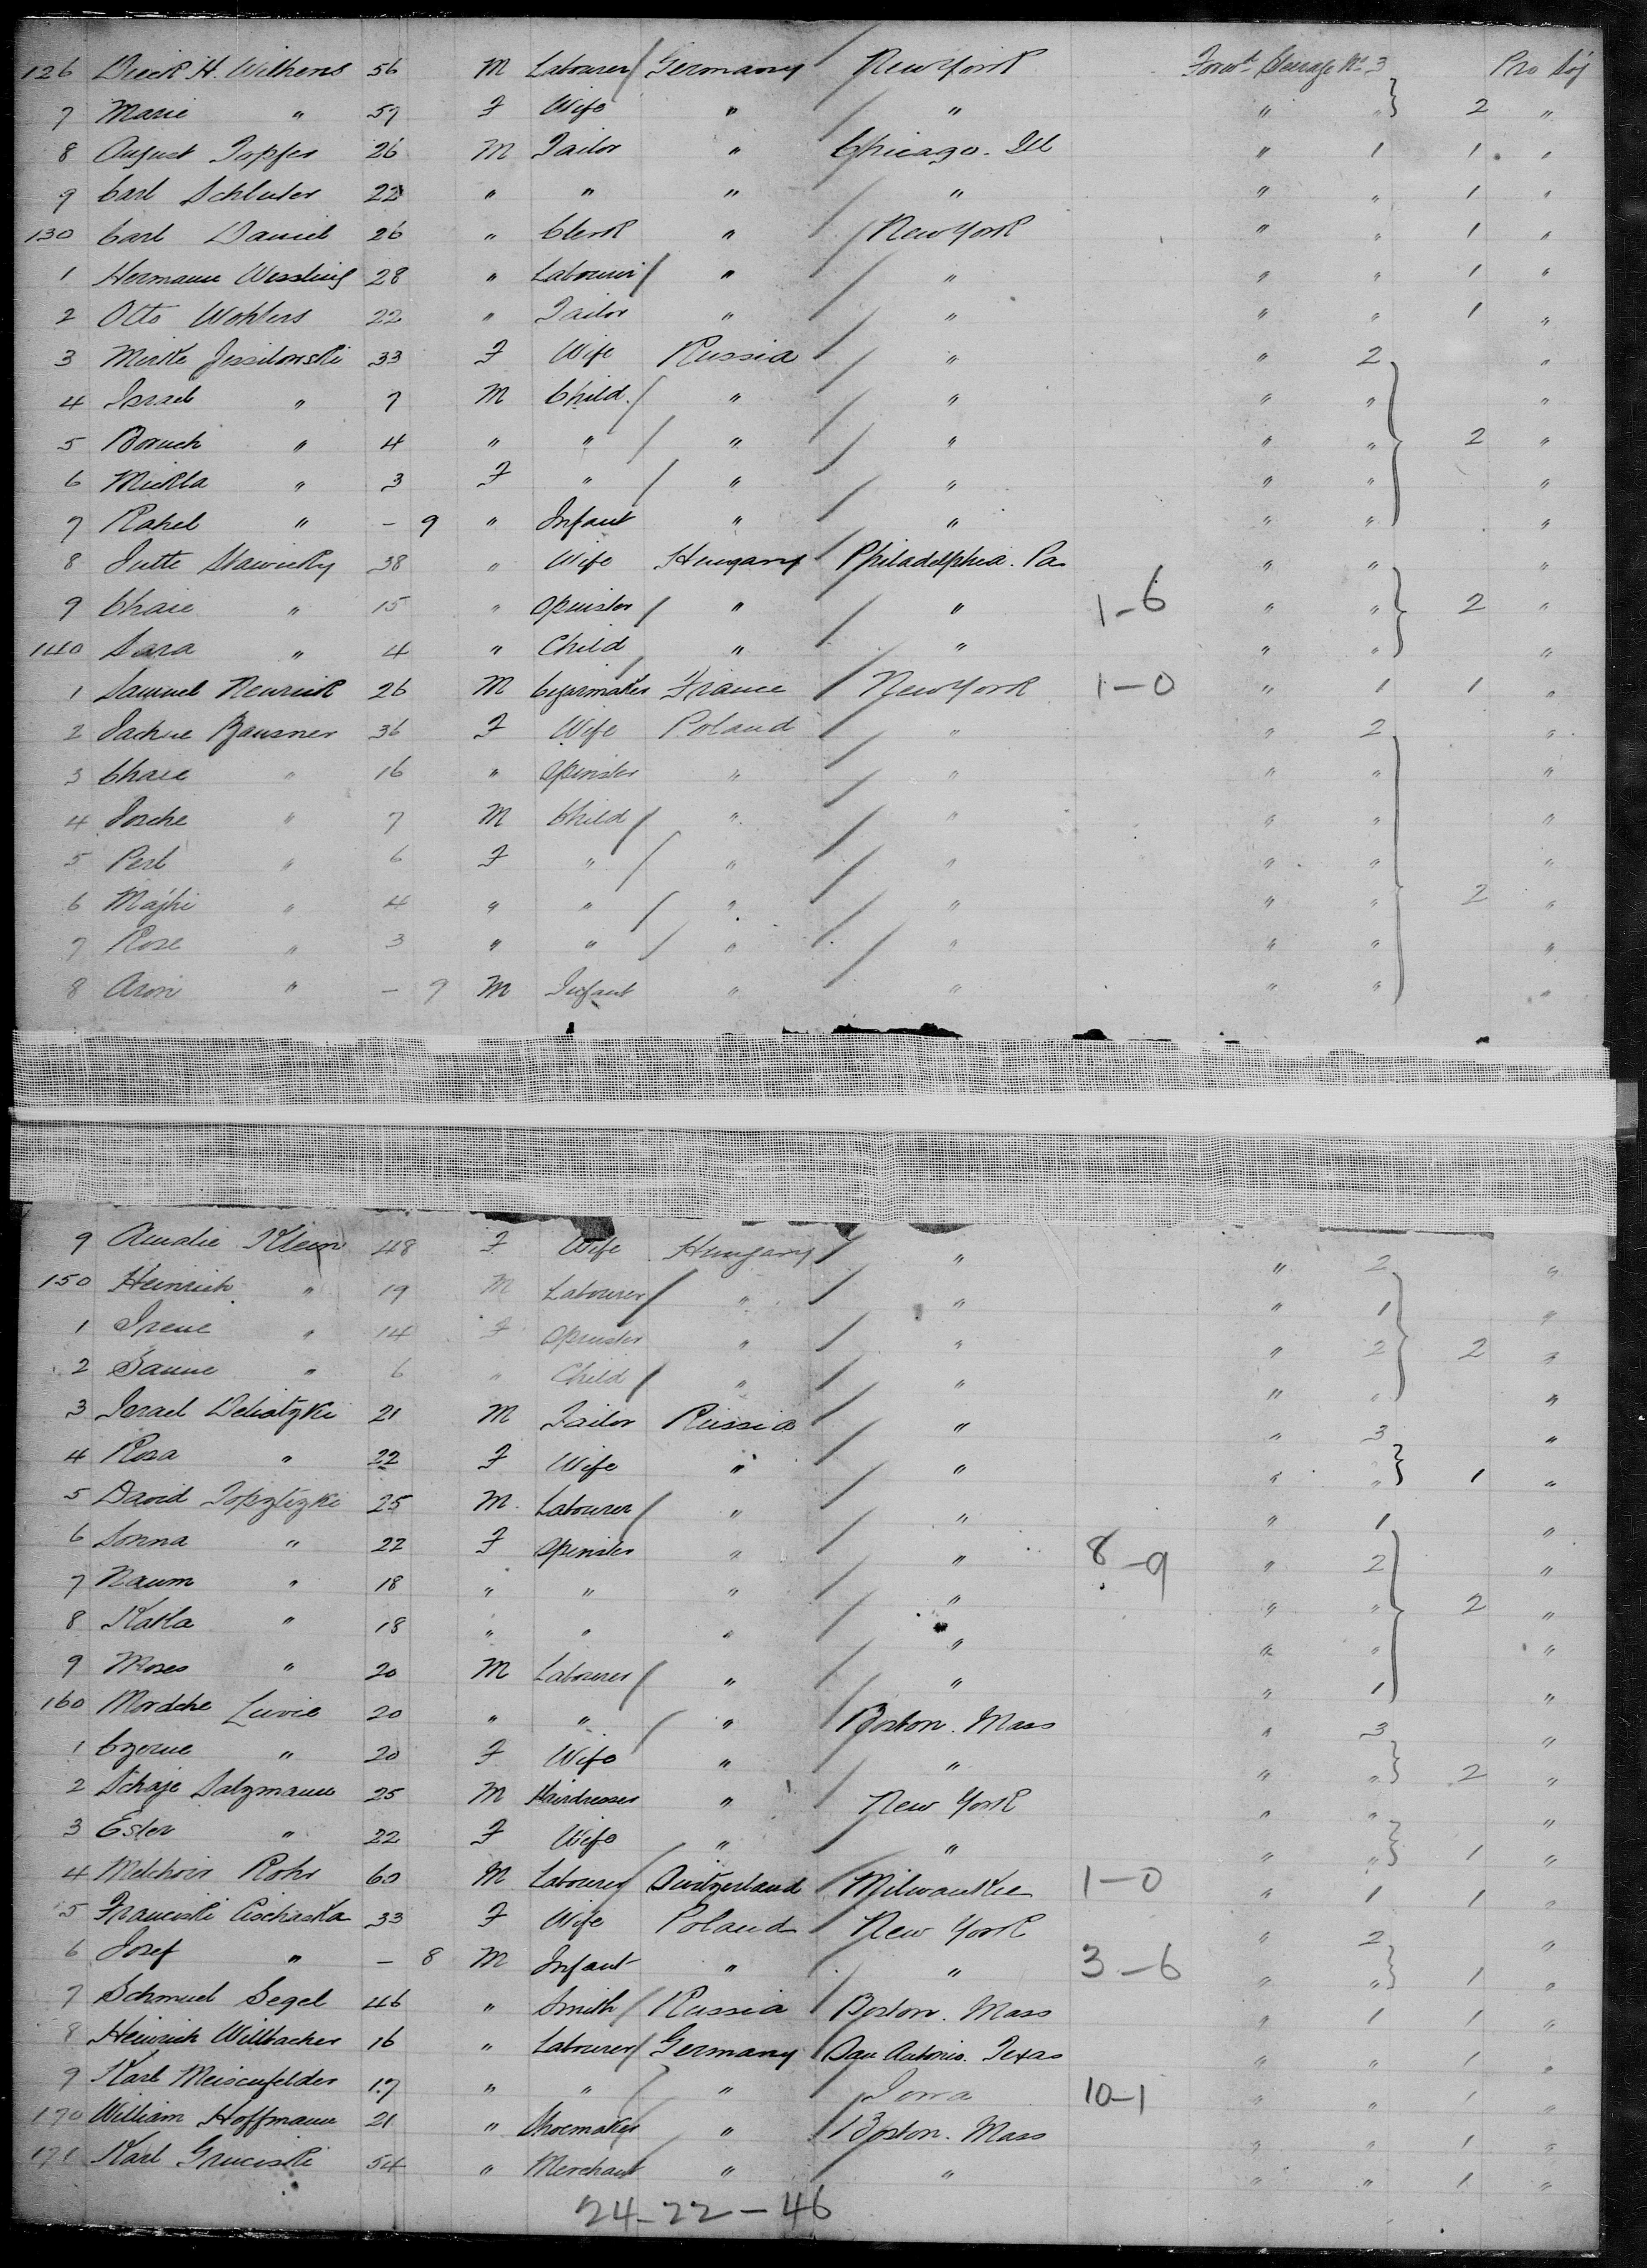 126 Dieck H. Wilkens 56 M Labourer Germany New York Forwd Steerage No 3 Pro Soj
7 Marie " 57 F Wife " " " " 2 "
8 August Topfer 26 M Tailor " Chicago. Ill " 1 1 "
9 Carl Schluter 22 " " " " " " 1 "
130 Carl Daniel 26 " Clerk " New York " " 1 "
1 Hermann Wessling 28 " Labourer " " " " 1 "
2 Otto Wohlers 22 " Tailor " " " " 1 "
3 Mirke Jessilowski 33 F Wife Russia " " 2 "
4 Israel " 7 M Child. " " " " "
5 Boruch " 4 " " " " " " 2 "
6 Mickla " 3 F " " " " " "
7 Rahel " - 9 " Infant " " " " "
8 Jutte Slawicky 38 " Wife Hungary Philadelphia. Pa " " "
9 Chaie " 15 " Spinster " " 1-6 " " 2 "
140 Sara " 4 " Child " " " " "
1 Samuel Neurick 26 M Cigarmaker France New York 1-0 " 1 1 "
2 Jachne Bausner 36 F Wife Poland " " 2 "
3 Chaie " 16 " Spinster " " " " "
4 Josche " 7 M Child " " " " "
5 Perl " 6 F " " " " " "
6 Majhi " 4 " " " " " " 2 "
7 Rose " 3 " " " " " " "
8 Aron " - 9 M Infant " " " " "
9 Amalie Klein 48 F Wife Hungary " " 2 "
150 Heinrich " 19 M Labourer " " " 1 "
1 Irene " 14 F Spinster " " " 2 2 "
2 Sanne " 6 " Child " " " " "
3 Israel Deliatzki 21 M Tailor Russia " " 3 "
4 Rosa " 22 F Wife " " " " 1 "
5 David Topzlizki 25 M. Labourer " " " 1 "
6 Sonna " 22 F Spinster " " 8-9 " 2 "
7 Naum " 18 " " " " " " 2 "
8 Kaka " 18 " " " " " " "
9 Moses " 20 M Labourer " " " 1 "
160 Mordche Luvie 20 " " " Boston. Mass " 3 "
1 Czerne " 20 F Wife " " " " 2 "
2 Schaje Salzmann 25 M Hairdresser " New York " " "
3 Ester " 22 F Wife " " " " 1 "
4 Melchoir Rohr 60 M Labourer Switzerland Milwaukee 1-0 " 1 1 "
5 Franciski Cischaska 33 F Wife Poland New York " 2 "
6 Josef " - 8 M Infant " " 3-6 " " 1 "
7 Schmuel Segel 46 " Smith Russia Boston. Mass " 1 1 "
8 Heinrich Willbacher 16 " Labourer Germany San Antonio. Texas " " 1 "
9 Karl Meisenfelder 17 " " " Iowa 10-1 " " 1 "
170 William Hoffmann 21 " Shoemaker " Boston. Mass " " 1 "
171 Karl Gruciski 54 " Merchant " " " " 1 "
24-22-46